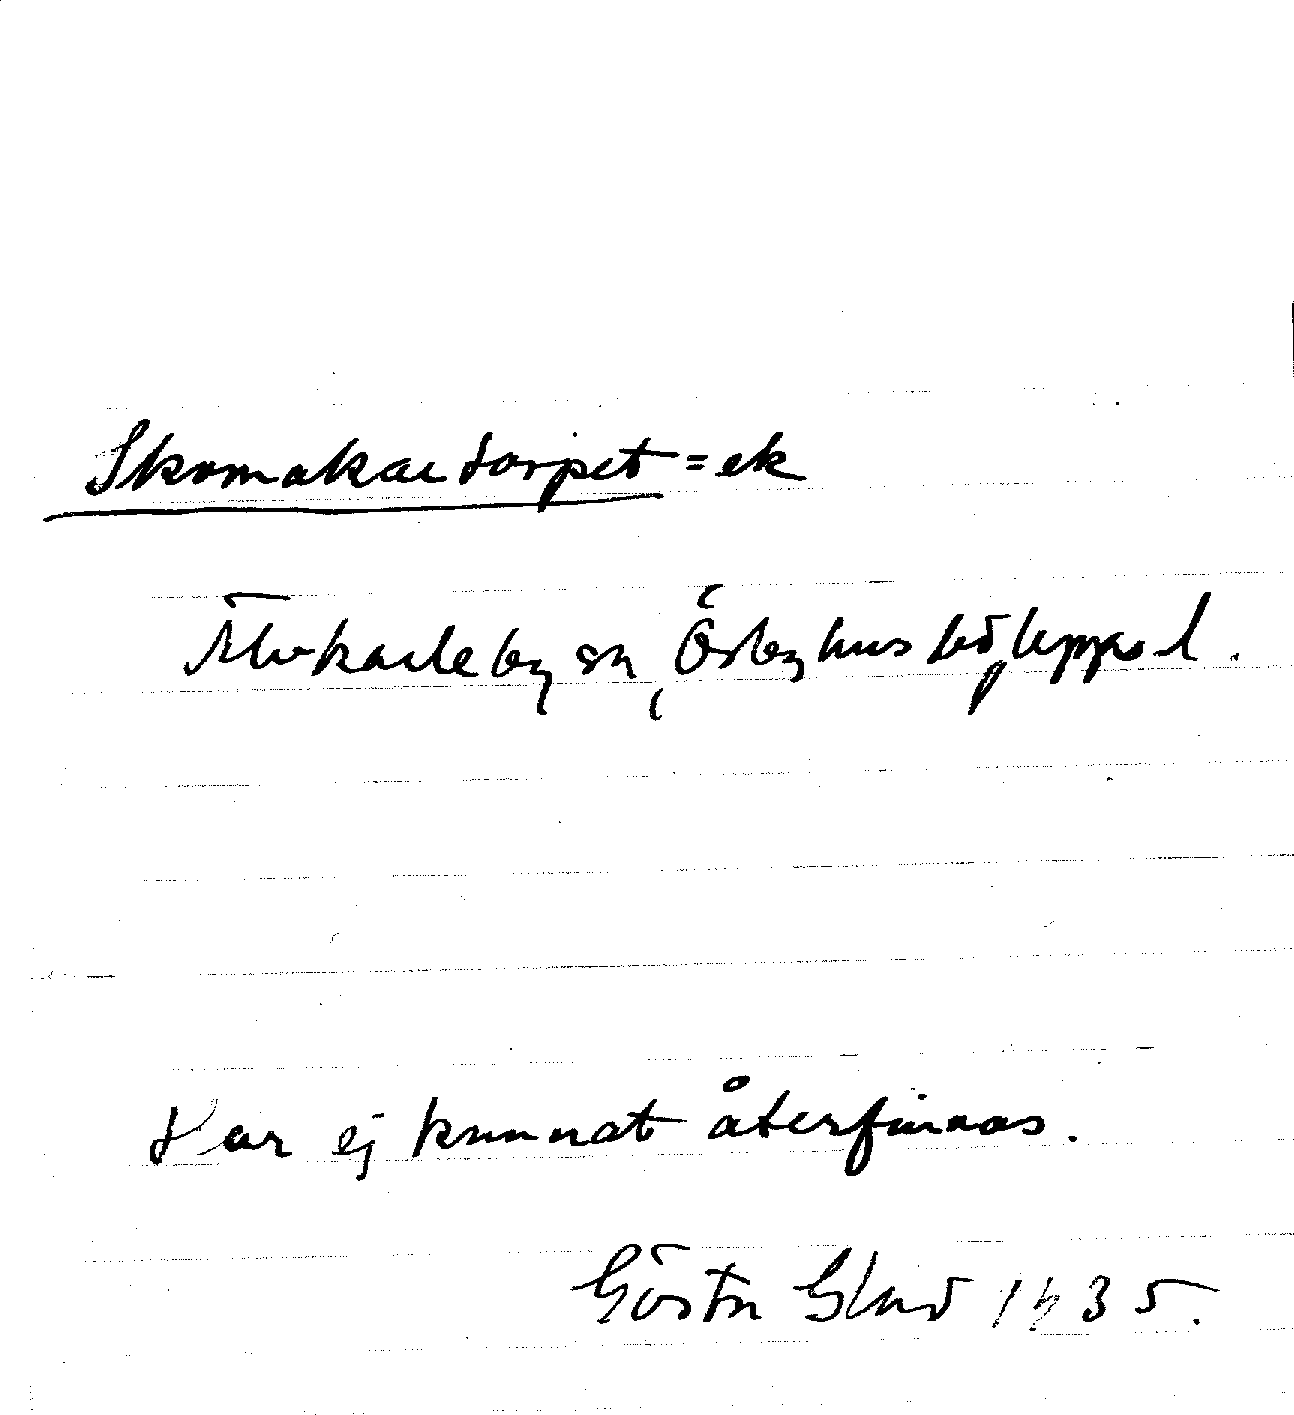 Skomakartorpet = ek
Älvkarleby sn, Örbyhus hd, Uppsal.
Har ej kunnat återfinnas.
Gösta Glad 1935.